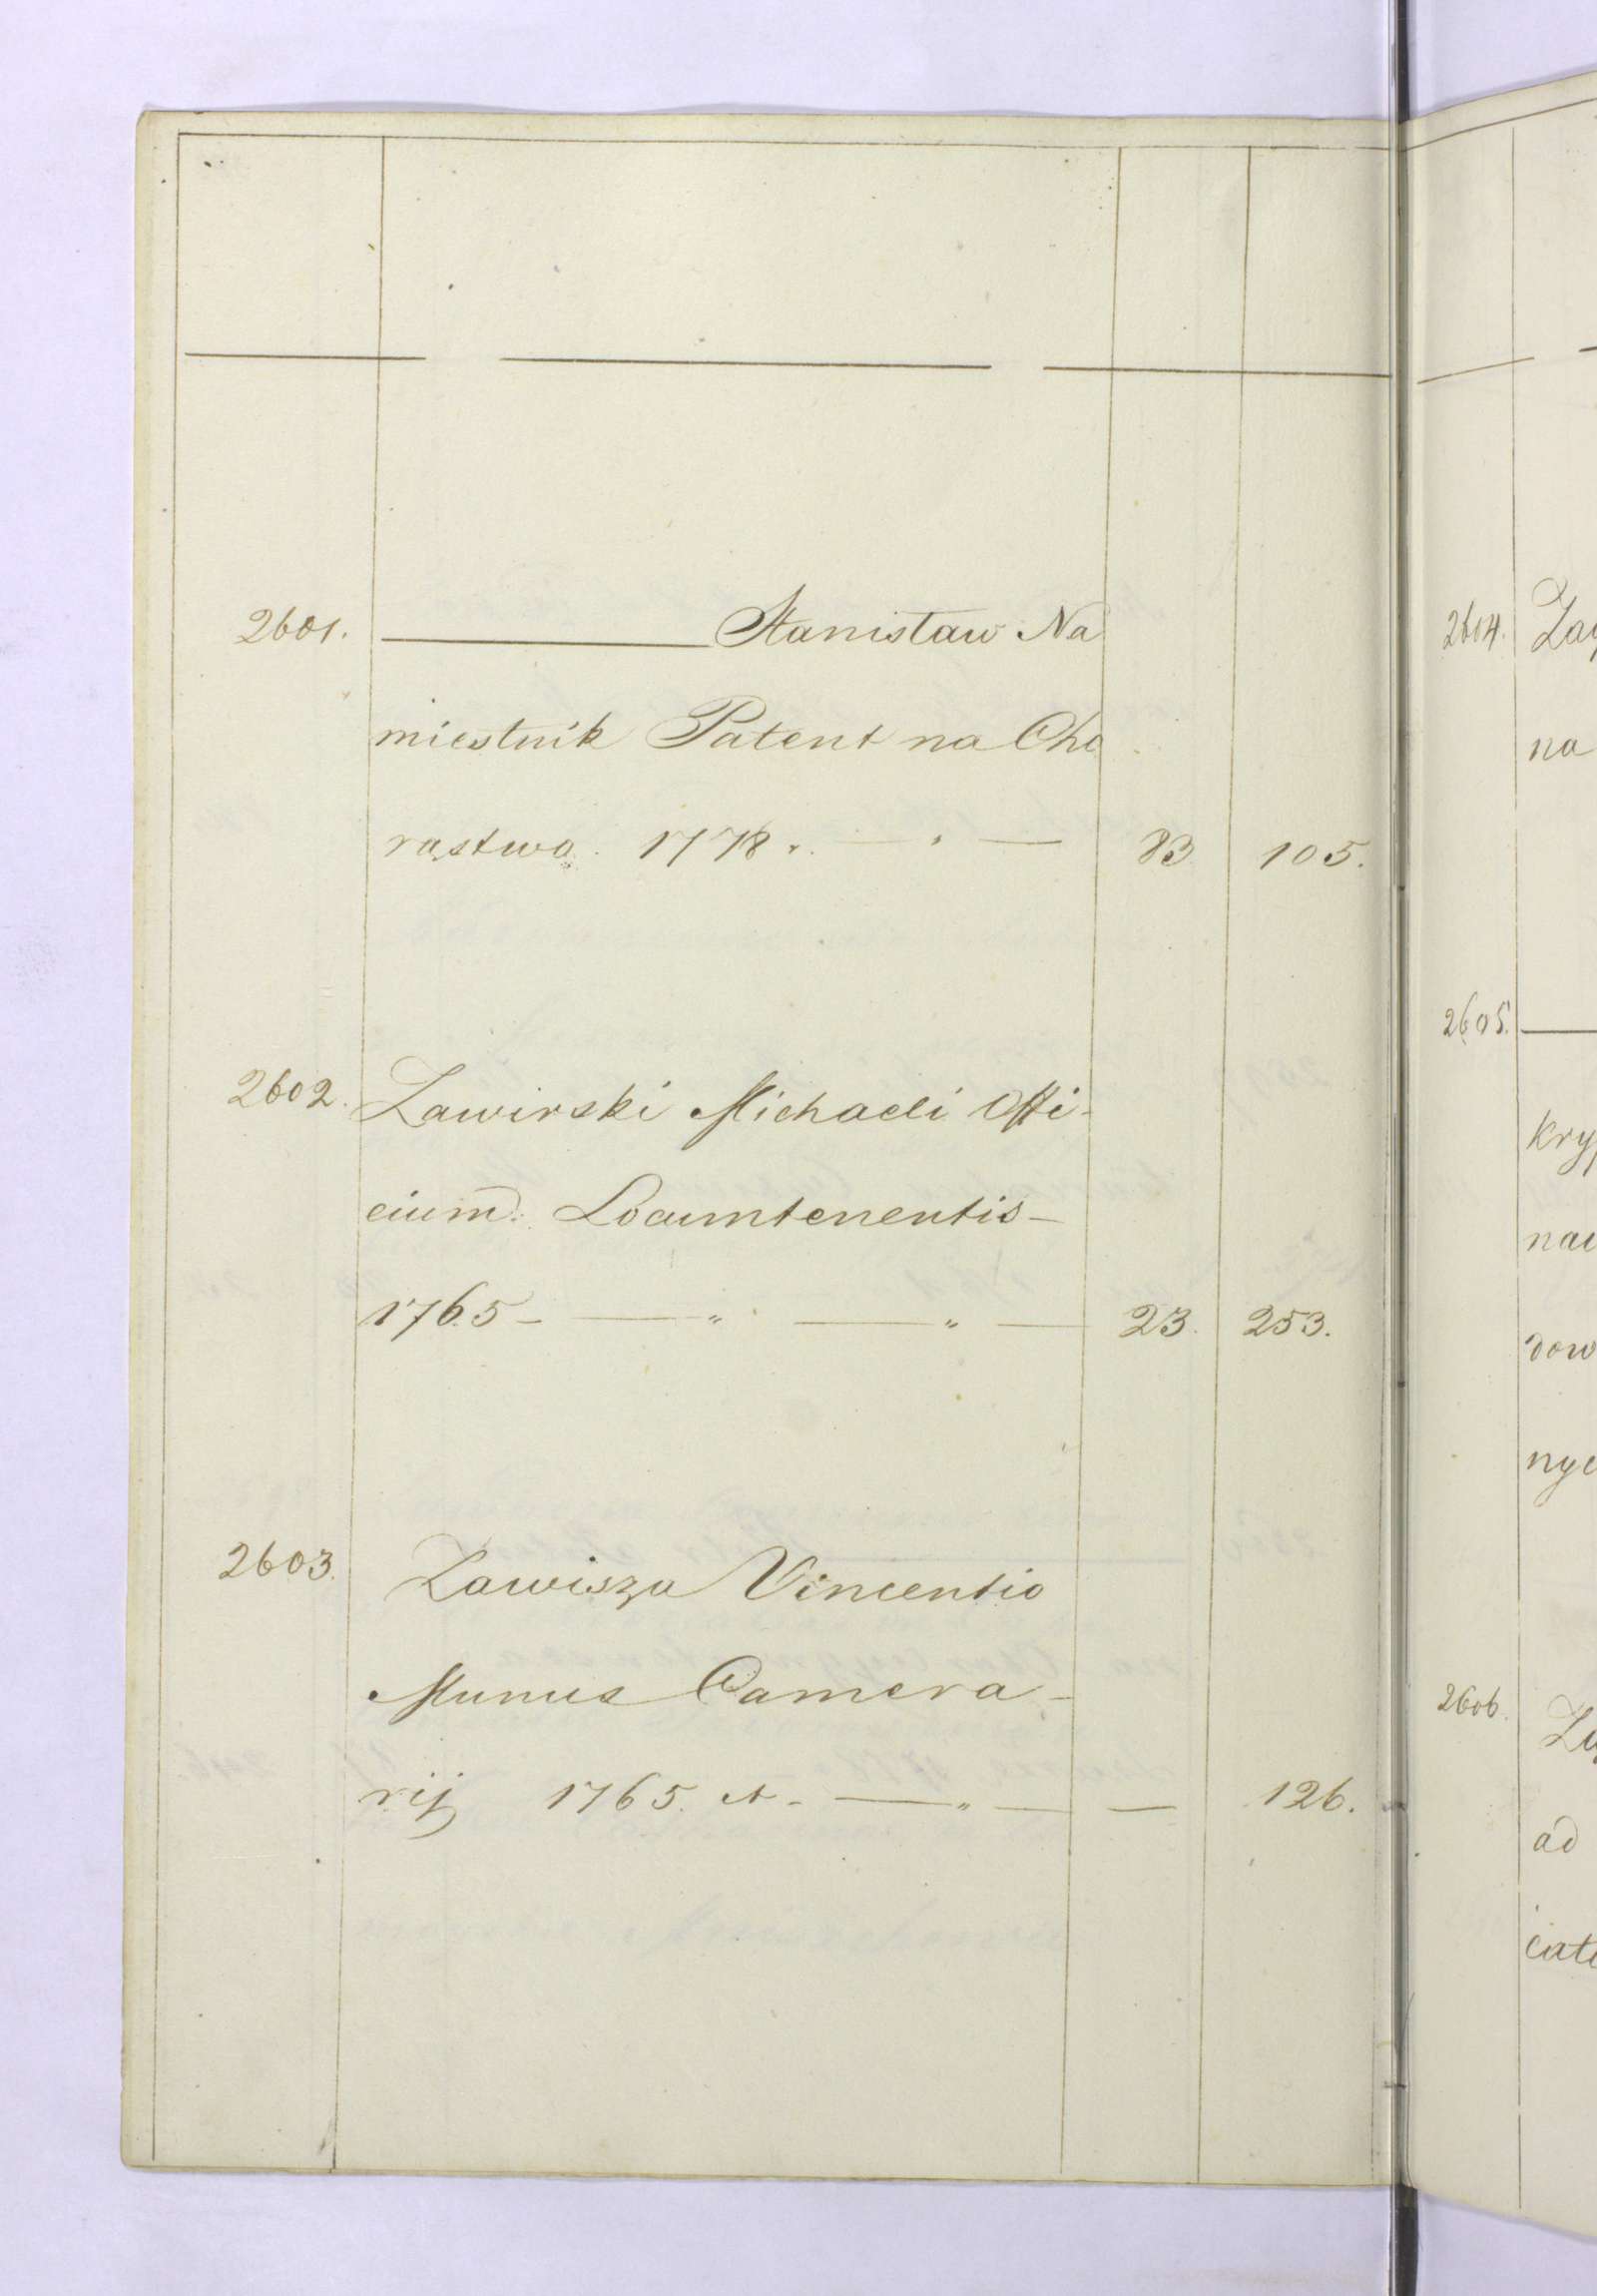 2601. ——— Stanisław Na
miestnik Patent na Cho
rastwo. 1778. — " — 83. 105.
2602. Zawirski Michaeli Offi-
cium. Locumtenentis —
1765 — — " — " — 23. 253.
2603. Zawisza Vincentio
Munus Camera-
rij 1765. — " — — 126.
2604. Zag
na
2605. —
kry
nac
dow
nyc
2606.
ad